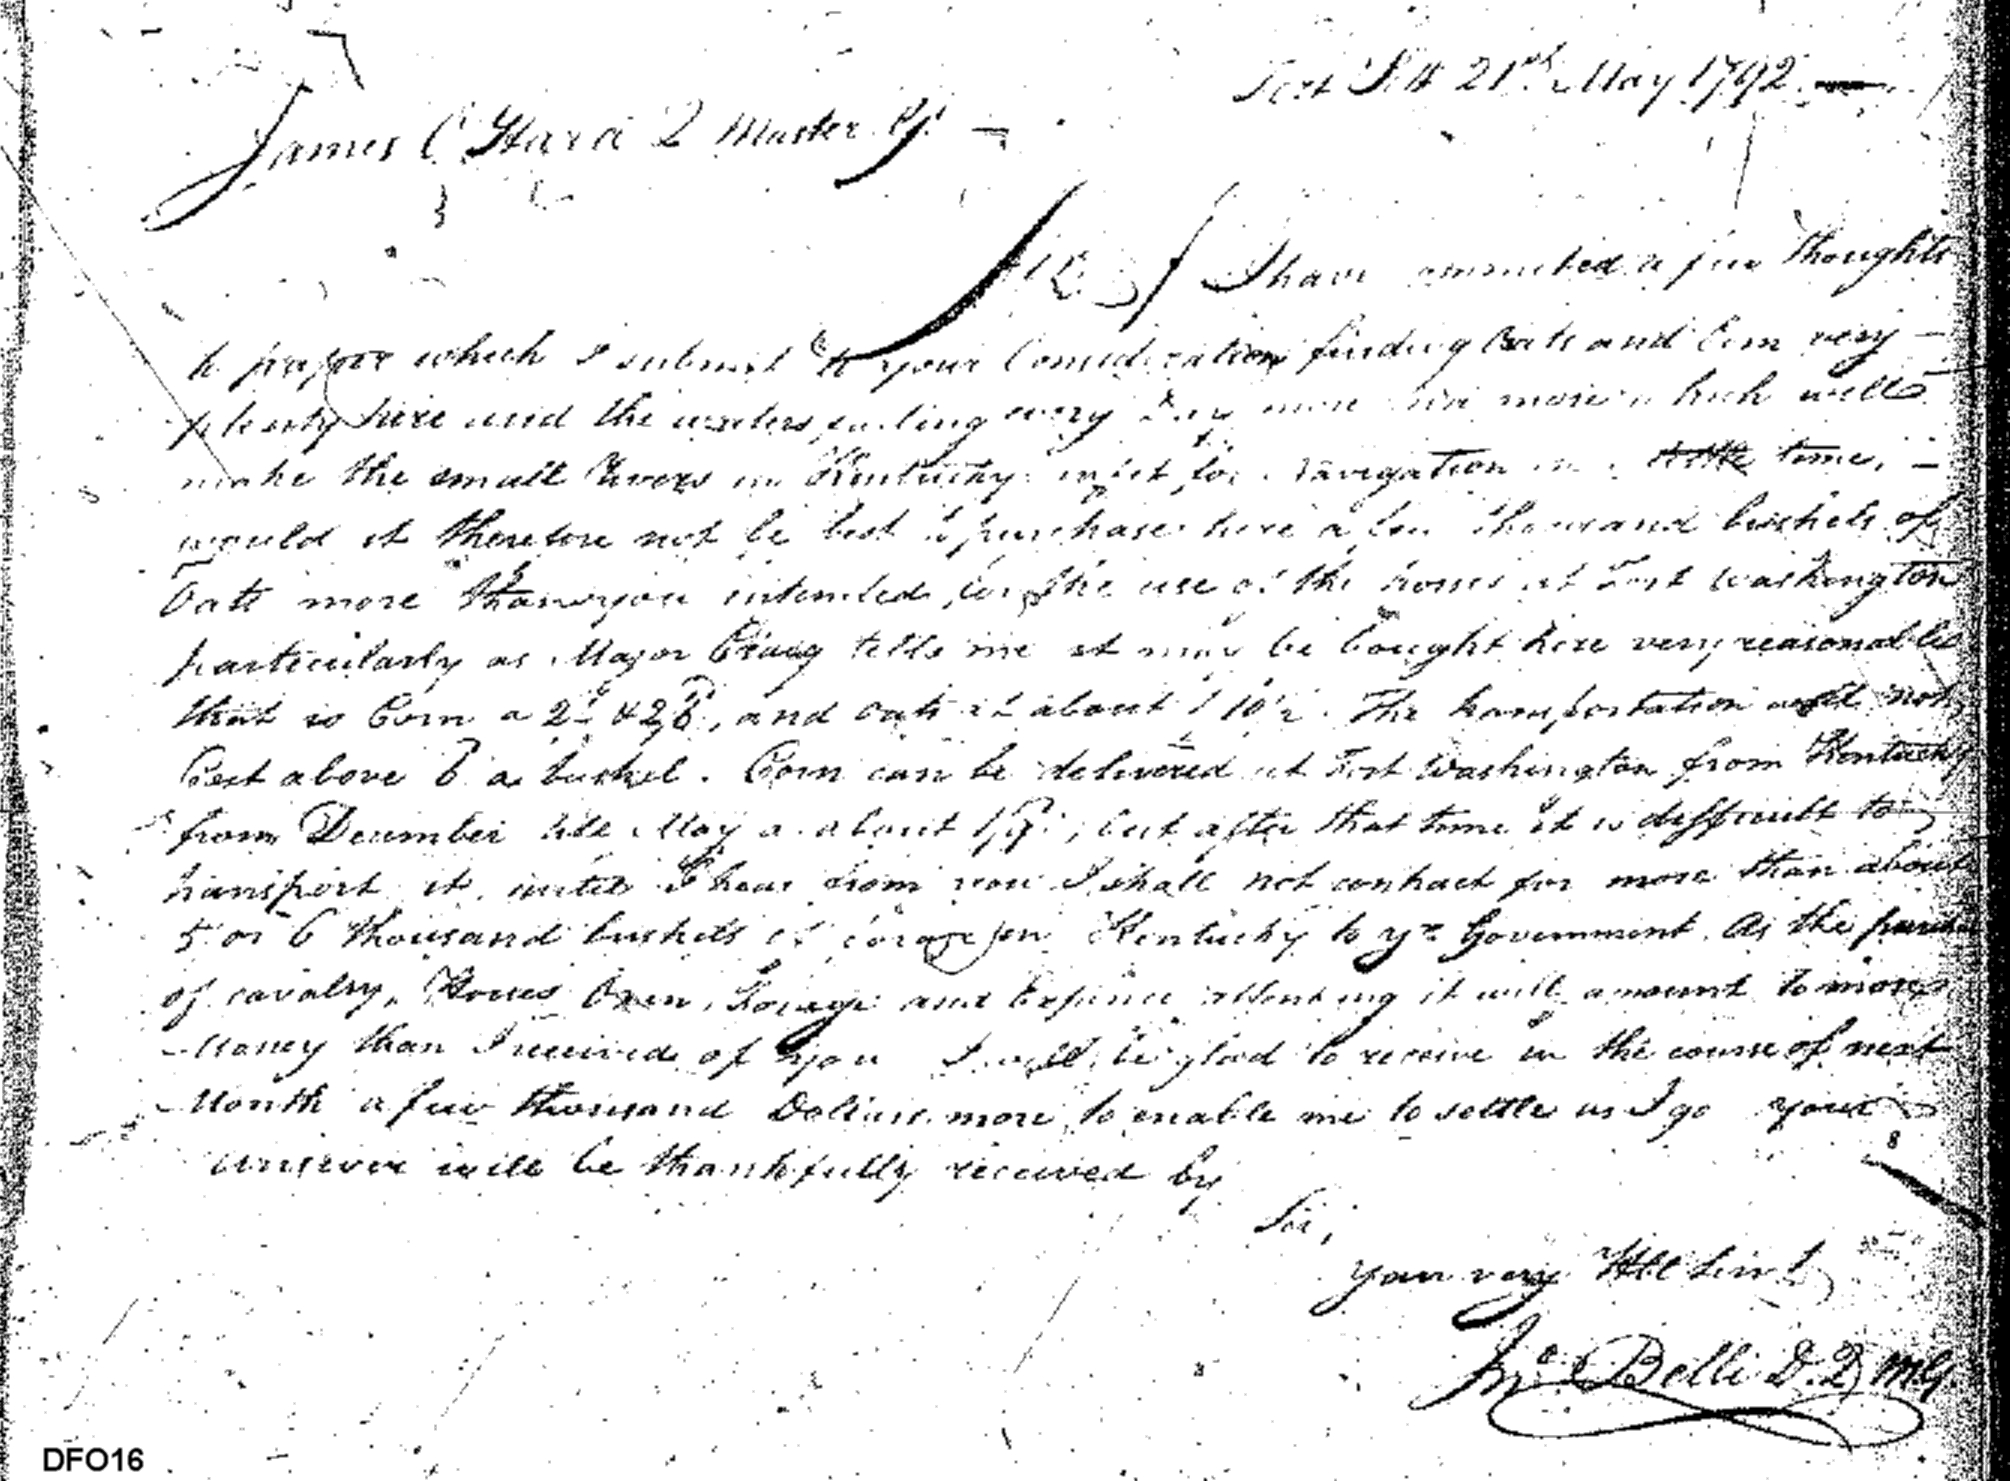 Fort Pitt 21st May 1792
James O Hara Q Master Gl
Sir I have committed a few thoughts
to paper which I submit to your Consideration finding Oats and Corn very
plenty here and the waters falling every Day more and more which will
make the small rivers in Kentucky unfit for Navigation in a little time,
would it therefore not be best to purchase here a few thousand bushels of
Oats more than you intended, for the use of the horses at Fort Washington
particularly as Major Craig tells me it may be bought here very reasonable
that is Corn a 2/ & 2/, and oats at about 1/10½. The transportation will not
Cost above 6 a bushel. Corn can be delivered at Fort Washington from Kentucky
from December till May a about 1/; but after that time it is difficult to
transport it. until I hear from you I shall not contract for more than about
5 or 6 thousand bushels of forage in Kentucky to yr Government. As the
of cavalry, Horses Oxen, Forage and Expence attending it will amount to more
Money than I received of you I will be glad to receive in the course of next
Month a few thousand Dollars more to enable me to settle as I go your
answer will be thankfully received by
Sir,
Your very Hble Servt
Jno Belli D. Q M G.
DFO16